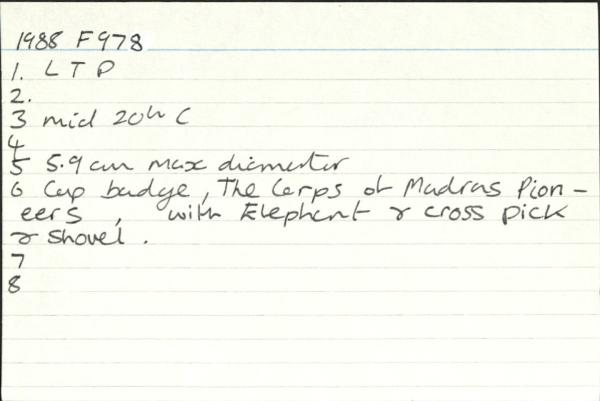 1988 F978
1. L T P
2.
3 mid 20th C
4
5 5.9 cm max diameter
6 Cap badge, The Corps of Madras Pion-
eers, with Elephant & cross pick
& shovel.
7
8